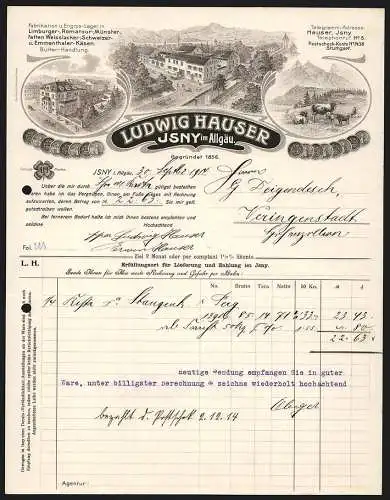 Fabrikation u. Engros-Lager in
Limburger-, Romansur-, Münster-,
fetten Weisslacker-, Schweizer-
u. Emmenthaler-Käsen.
Butter-Handlung.
Telegramm-Adresse:
Hauser, Jsny
Telephonruf Nº 5.
Postscheck-Konto Nº 1438
Stuttgart.
LUDWIG HAUSER
JSNY im Allgäu.
Gegründet 1856.
JSNY i. Allgäu, 30. Septbr. 1914
Herrn
Deigendesch,
Veringenstadt.
Ueber die mir durch
gütigst bestellten
Waren habe ich das Vergnügen, Ihnen am Fuße dieses mit Rechnung
aufzuwarten, deren Betrag von M 22.63. Sie mir gefl.
gutschreiben wollen.
Bei fernerem Bedarf halte mich Ihnen bestens empfohlen und
zeichne
Hochachtend
Ludwig Hauser
Erwin Hauser
Fol.
Ziel 2 Monat oder per comptant 1% Skonto
L. H.
Erfüllungsort für Lieferung und Zahlung ist Jsny.
Sende Ihnen für Ihre werte Rechnung und Gefahr per Bahn:
No. Brutto Tara Netto 50 Ko. M ₰
1 Kiste Stangenk.
85 14 71 33 23 43
80
22 63
heutige Sendung empfangen Sie in guter
Ware, unter billigster Berechnung & zeichne wiederholt hochachtend
bezahlt d. Postscheck 2.12.14
Agentur: